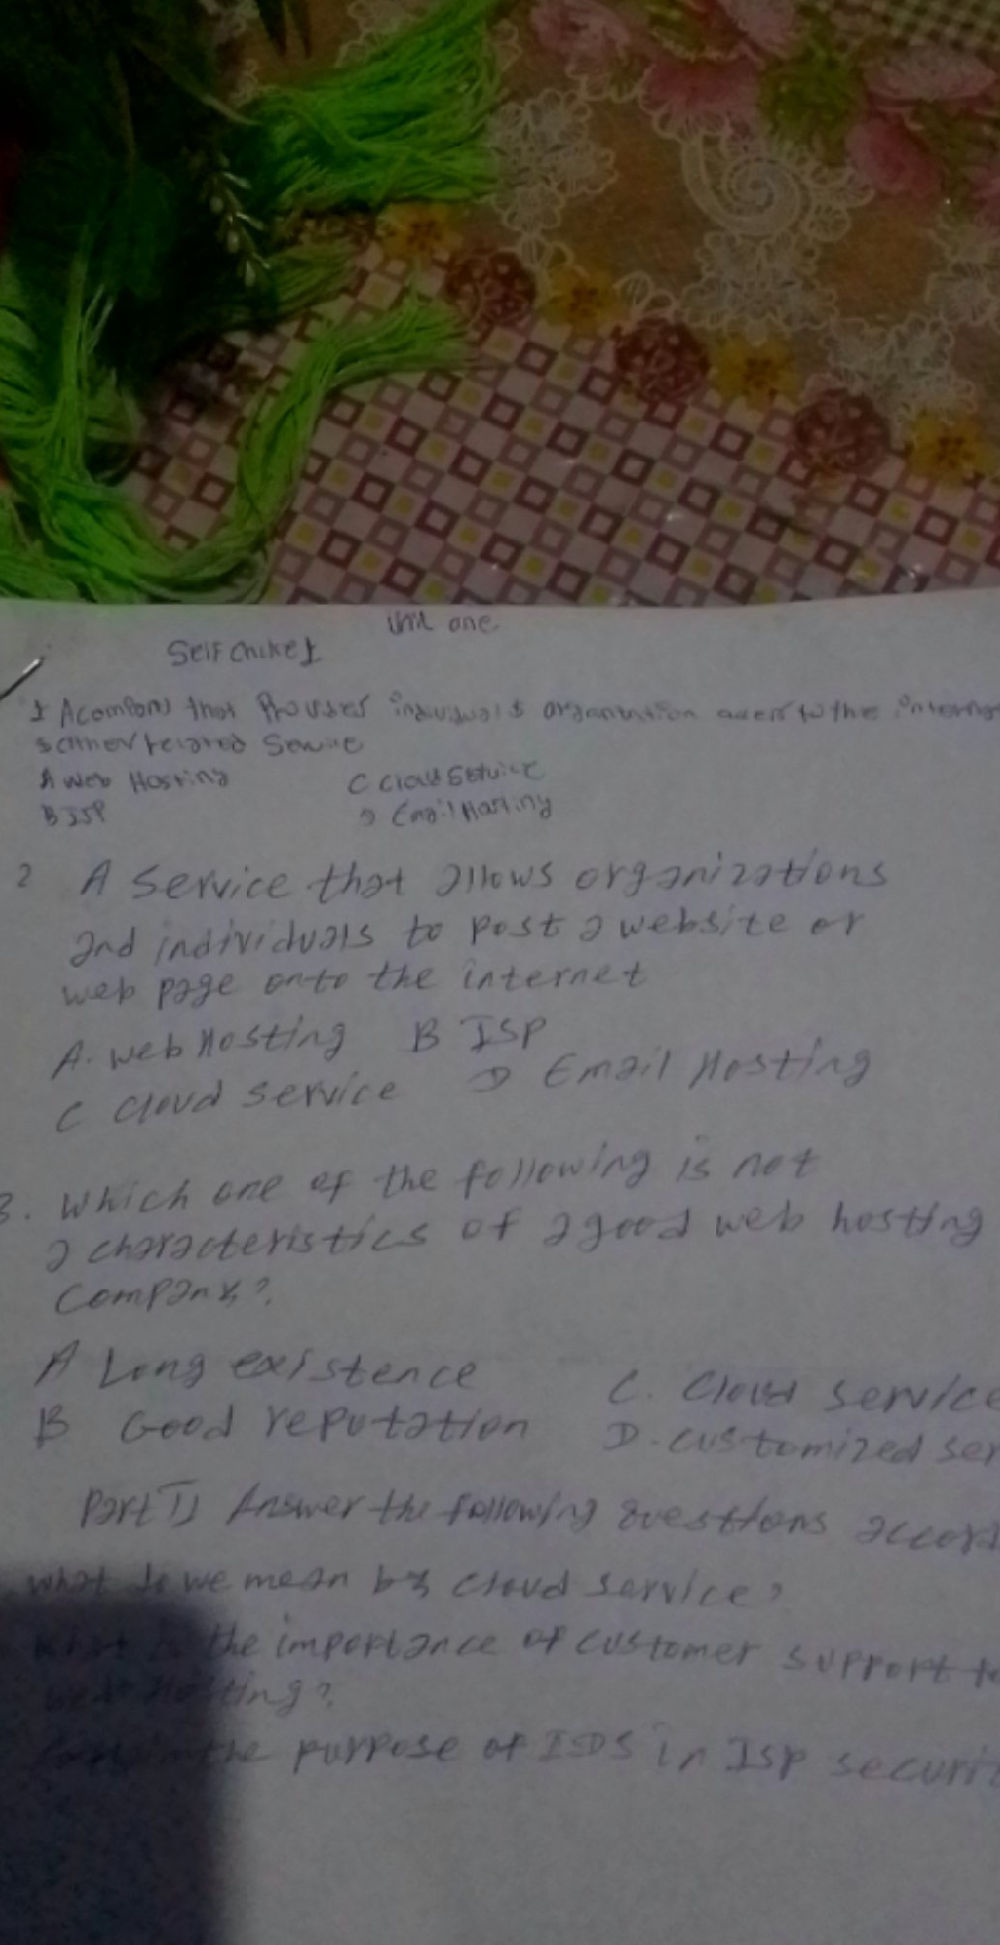 Unit one
Self Chike 1
1 A compony that Provides individual & organization acces to the internet
& other related Service
A Web Hosting C Cloud Service
B ISP D Email Hosting
2 A Service that allows organizations
and individuals to post a website or
web page onto the internet
A. web Hosting B ISP
C Cloud service D Email Hosting
3. Which one of the following is not
a characteristics of a good web hosting
Company?
A Long existence C. Cloud service
B Good reputation D. customized ser
Part II Answer the following questions accord
what do we mean by cloud service?
what is the importance of customer support to
web Hosting?
the purpose of IDS in ISP securit